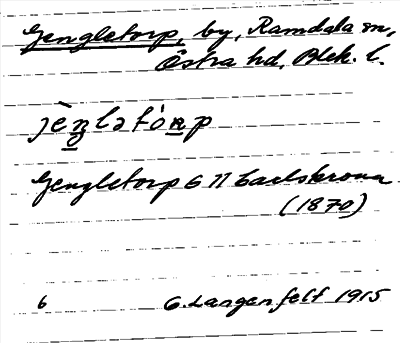 Gengletorp, by, Ramdala sn,
Östra hd, Blek. l.
jèŋlətòrp
Gengletorp 6 11 Carlskrona
(1870)
6 G. Langenfelt 1915